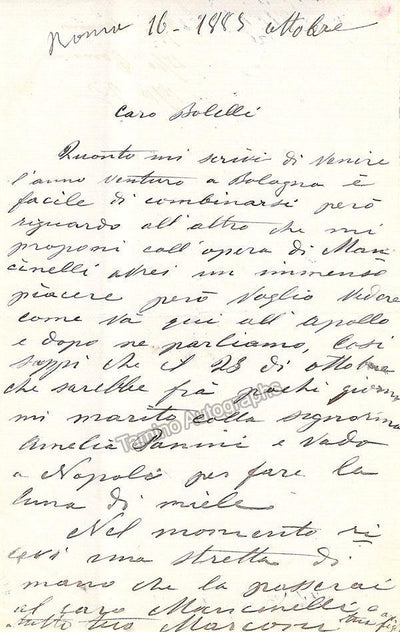 Roma 16 - 1883 ottobre
Caro Bolelli
Quanto mi scrivi di venire
l'anno venturo a Bologna è
facile di combinarsi però
riguardo all'altro che mi
proponi coll'opera di Man
cinelli avrei un immenso
piacere però voglio vedere
come va qui all'Apollo
e dopo ne parliamo, Così
sappi che il 23 di ottobre
che sarebbe frà pochi giorni
mi marito colla signorina
Amelia e vado
a Napoli per fare la
luna di miele
Nel momento ri
cevi una stretta di
mano che la passerai
al caro Mancinelli e
tutto tuo Marconi
Tamino Autographs